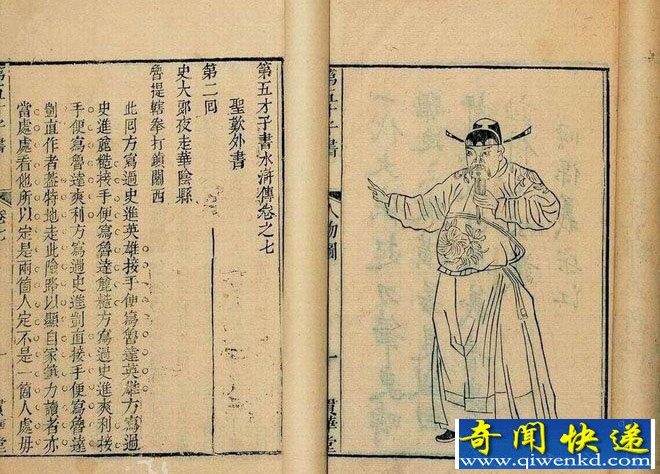 第五才子書
人物圖
一
貫華堂
第五才子書水滸傳卷之七
聖歎外書
第二回
史大郎夜走華陰縣
魯提轄拳打鎮關西
此回方寫過史進英雄接手便寫魯達英雄方寫過
史進麄糙接手便寫魯達麄糙方寫過史進爽利接
手便寫魯達爽利方寫過史進剴直接手便寫魯達
剴直作者蓋特地走此險路以顯自家筆力讀者亦
當處處看他所以定是兩箇人定不是一箇人處毋
第五才子書
卷七
一
貫華堂
奇闻快递
www.qiwenkd.com